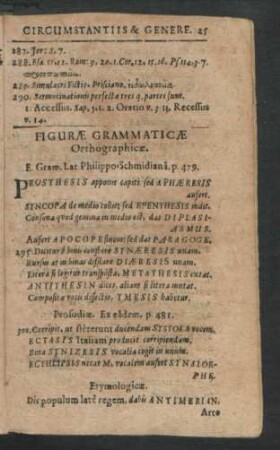 CIRCUMSTANTIIS & GENERE. 25
287. Jer: 5. 7.
289. Simulacri Fictio. Prisciano,
290. Sermocinationis perfectæ tres q. partes sunt.
1. Accessus. Sap. 5. 1. 2. Oratio v. 3. 4. Recessus
v. 14.
FIGURÆ GRAMMATICÆ
Orthographicæ.
E. Gram. Lat Philippo-Schmidianâ. p. 479.
PROSTHESIS apponit capiti: sed APHÆRESIS
aufert.
SYNCOPA de medio tollit; sed EPENTHESIS indit.
Consona quod gemina in medio est, das DIPLASI-
ASMUS.
Aufert APOCOPE finem: sed dat PARAGOGE.
295. Ducitur è binis conflare SYNÆRESIS unam.
Rursus at in binas diffilare DIÆRESIS unam.
Litera si legitur transposta, METATHESIS extat.
ANTITHESIN dices, aliam si litera mutat.
Compositæ vocis disjectio, TMESIS habetur.
Prosodiæ. Ex eâdem. p. 481.
300. Corripit, ut steterunt ducendam SYSTOLA vocem.
ECTASIS Italiam producit corripiendam.
Bina SYNIZESIS vocalia cogit in unum.
ECTHLIPSIS necat M. vocalem aufert SYNALOE-
PHE.
Etymologicæ.
Dic populum latè regem. dabis ANTIMERIAN.
Arco